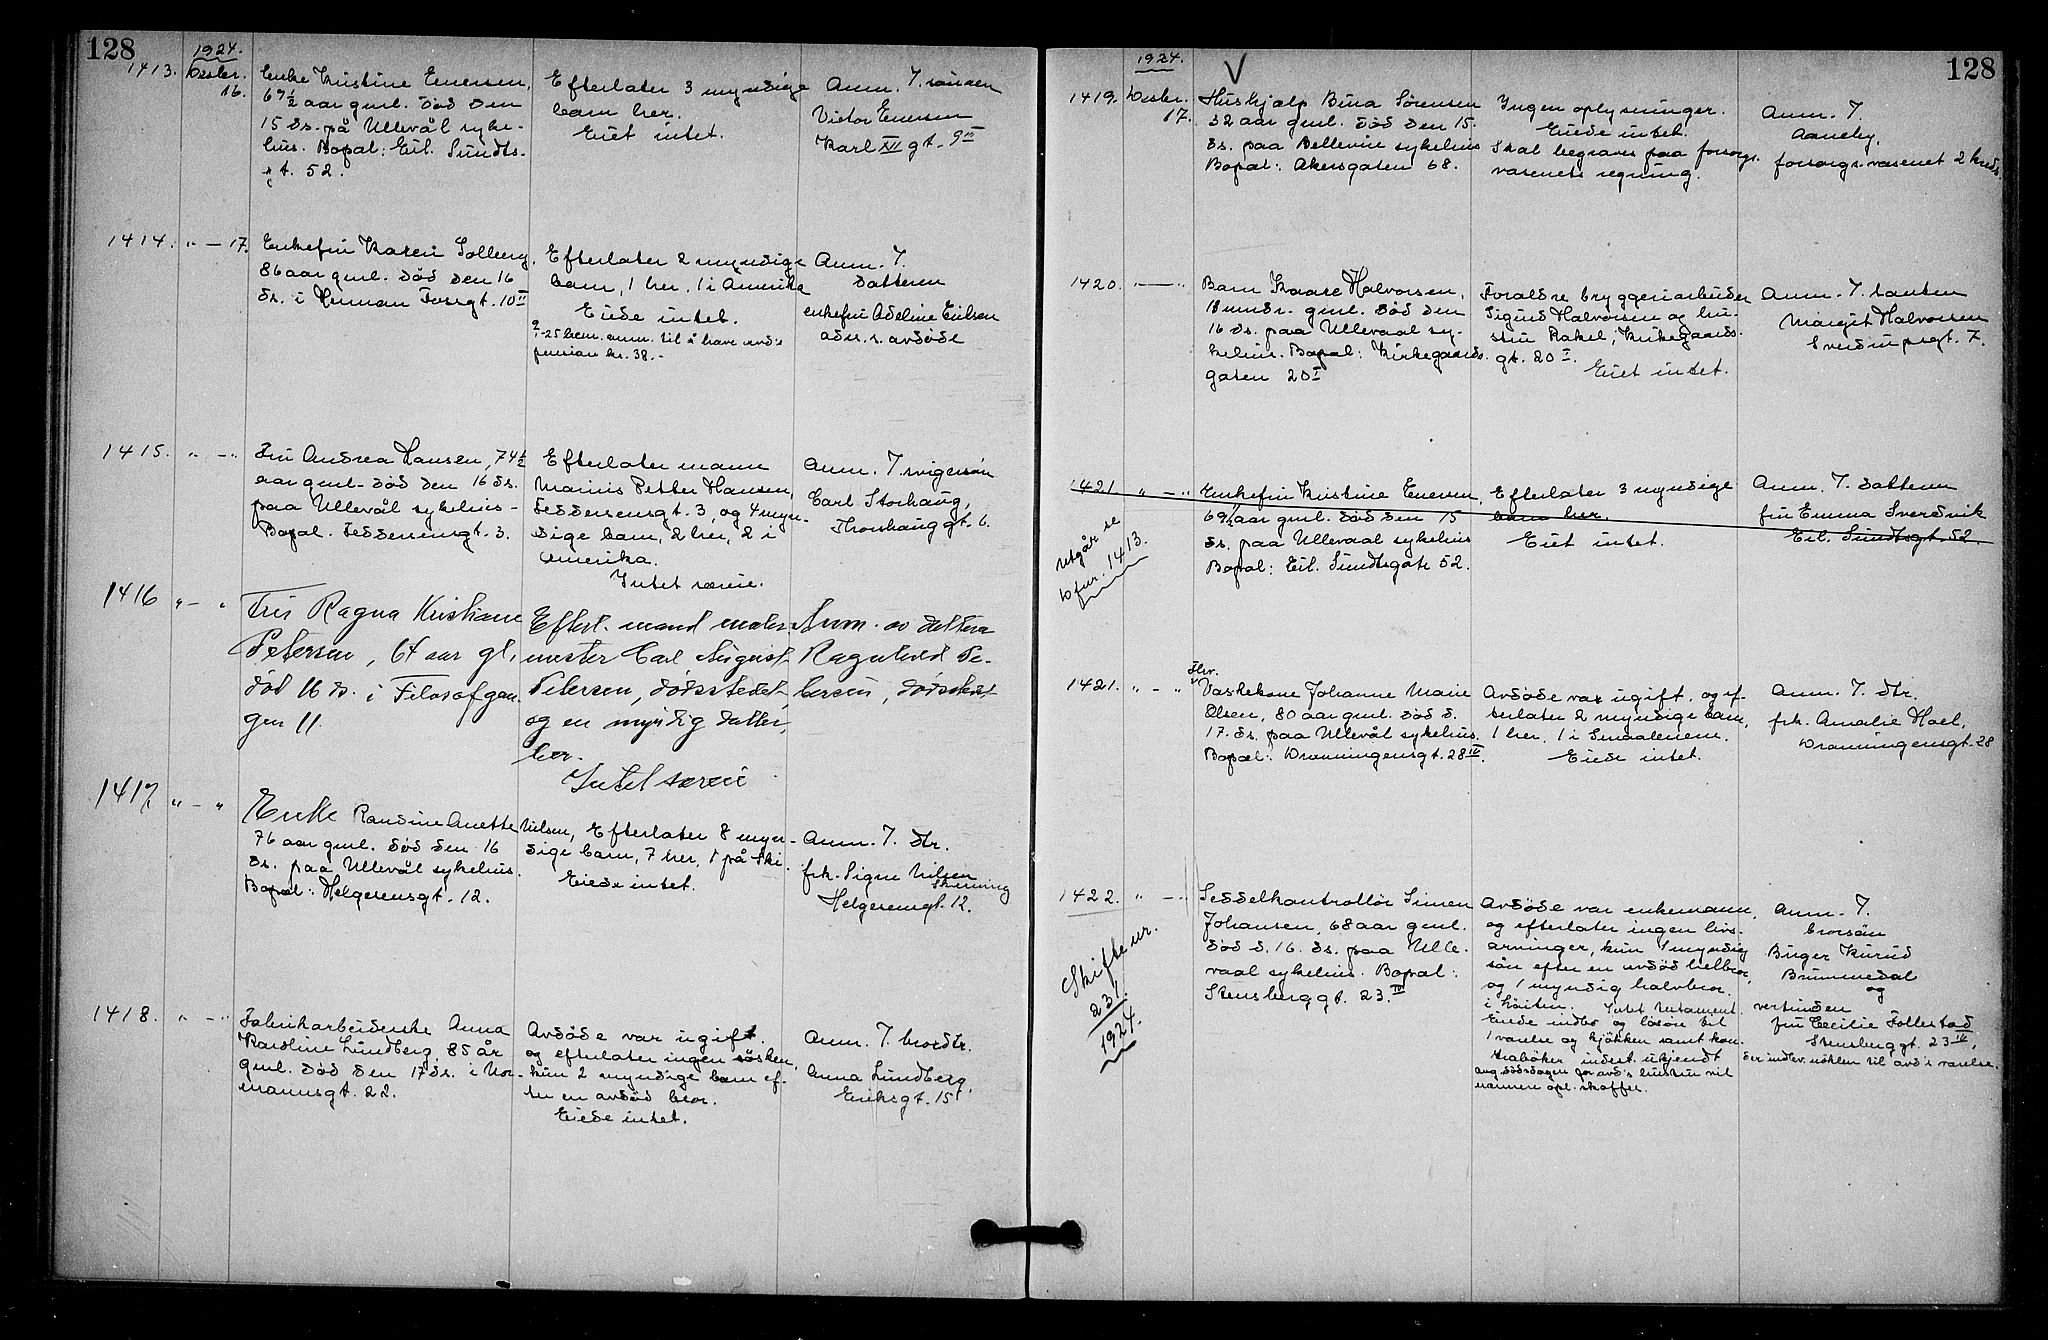 128
1924.
1413. Desbr. 16.
Enke Kristine Enersen,
69 1/2 aar gml. død den
15 ds. på Ullevål syke-
hus. Bopæl: Eil. Sundts-
gt. 52.
Efterlater 3 myndige
barn her.
Eiet intet.
Anm. T. sønnen
Victor Enersen
Karl XII gt. 9 III
1414. " — 17.
Enkefru Karen Solberg,
86 aar gml. død den 16
ds. i Herman Fossgt. 10 II
Efterlater 2 myndige
barn, 1 her, 1 i Amerika
Eiede intet.
pension kr. 38.-
Anm. T.
datteren
enkefru Adeline Eielsen
adr. s. avdøde
1415. " — "
Fru Andrea Hansen, 74 1/2
aar gml. død den 16 ds.
paa Ullevål sykehus -
Bopæl. Feddersensgt. 3.
Efterlater mann
Marius Petter Hansen,
Feddersensgt. 3, og 4 myn-
dige barn, 2 her, 2 i
Amerika.
Intet særeie.
Anm. T. svigersøn
Carl Storhaug,
Thorshauggt. 6.
1416 " — "
Fru Ragna Kristiane
Petersen, 64 aar gl,
død 16 ds. i Filosofgan-
gen 11.
Efterl. mand maler-
mester Carl August
Petersen, dødsstedet,
og en myndig datter,
her.
Intet særeie
Anm. av datteren
Ragnhild Pe-
tersen, dødsstedet
1417 " — "
Enke Randine Anette Nilsen,
76 aar gml. død den 16
ds. paa Ullevål sykehus.
Bopæl: Helgesensgt. 12.
Efterlater 8 myn-
dige barn, 7 her, 1 på Ski
Eiede intet.
Anm. T. dtr.
frk. Signe Nilsen
Helgesensgt. 12.
1418. " — "
Fabrikarbeiderske Anna
Karoline Lundberg, 85 år
gml. død den 17 ds. i Nor-
mannsgt. 22.
Avdøde var ugift.
og efterlater ingen søsken,
kun 2 myndige barn ef-
ter en avdød bror.
Eiede intet.
Anm. T. brordtr.
Anna Lundberg,
Eriksgt. 15 I
128
1924.
V
1419. Desbr. 17.
Hushjælp Bina Sørensen
32 aar gml. død den 15.
ds. paa Bellevue sykehus
Bopæl: Akersgaten 68.
Ingen oplysninger.
Eiede intet.
Skal begraves paa forsorgs-
væsenets regning.
Anm. T.
Aaneby,
forsorgsvæsenet 2 kreds.
1420. " — "
Barn Kaare Halvorsen,
18 mndr. gml. død den
16 ds. paa Ullevaal sy-
kehus. Bopæl: Kirkegaards-
gaten 20 I
Forældre bryggeriarbeider
Sigurd Halvorsen og hu-
stru Rakel, Kirkegaards-
gt. 20 I.
Eiet intet.
Anm. T. tanten
Margit Halvorsen
Sverdrupsgt. 7.
1421. " — "
utgår se
lø.nr. 1413.
Enkefru Kristine Enersen,
69 1/2 aar gml. død den 15
ds. paa Ullevaal sykehus
Bopæl: Eil. Sundtsgate 52.
Efterlater 3 myndige
barn her.
Eiet intet.
Anm. T. datteren
fru Emma Sverdvik
Eil. Sundtsgt. 52.
1421. " — "
Fhv.
Vaskekone Johanne Marie
Olsen, 80 aar gml. død d.
17. ds. paa Ullevål sykehus.
Bopæl: Dronningensgt. 28 IV.
Avdøde var ugift. og ef-
terlater 2 myndige barn,
1 her, 1 i Smaalenene.
Eiede intet.
Anm. T. dtr.
frk. Amalie Hoel,
Dronningensgt. 28
1422. " — "
Skifte nr.
231
1924.
Seddelkontrollør Simen
Johansen, 68 aar gml.
død d. 16. ds. paa Ulle-
vaal sykehus. Bopæl:
Stensberggt. 23. IV
Avdøde var enkemann,
og efterlater ingen livs-
arvinger, kun 1 myndig
søn efter en avdød helbror,
og 1 myndig halvbror
i Løiten. Intet testament.
Eiede indbo og løsøre til
1 værelse og kjøkken samt kon-
trabøker indest. ukjendt
ang. dødsdagen for avd's hustru vil
nærmere opl. skaffes.
Anm. T.
brorsøn
Birger Kurud
Brummedal
og
vertinden
fru Cecilie Follestad
Stensberggt. 23 IV,
der indlev. nøklen til avd's værelse.